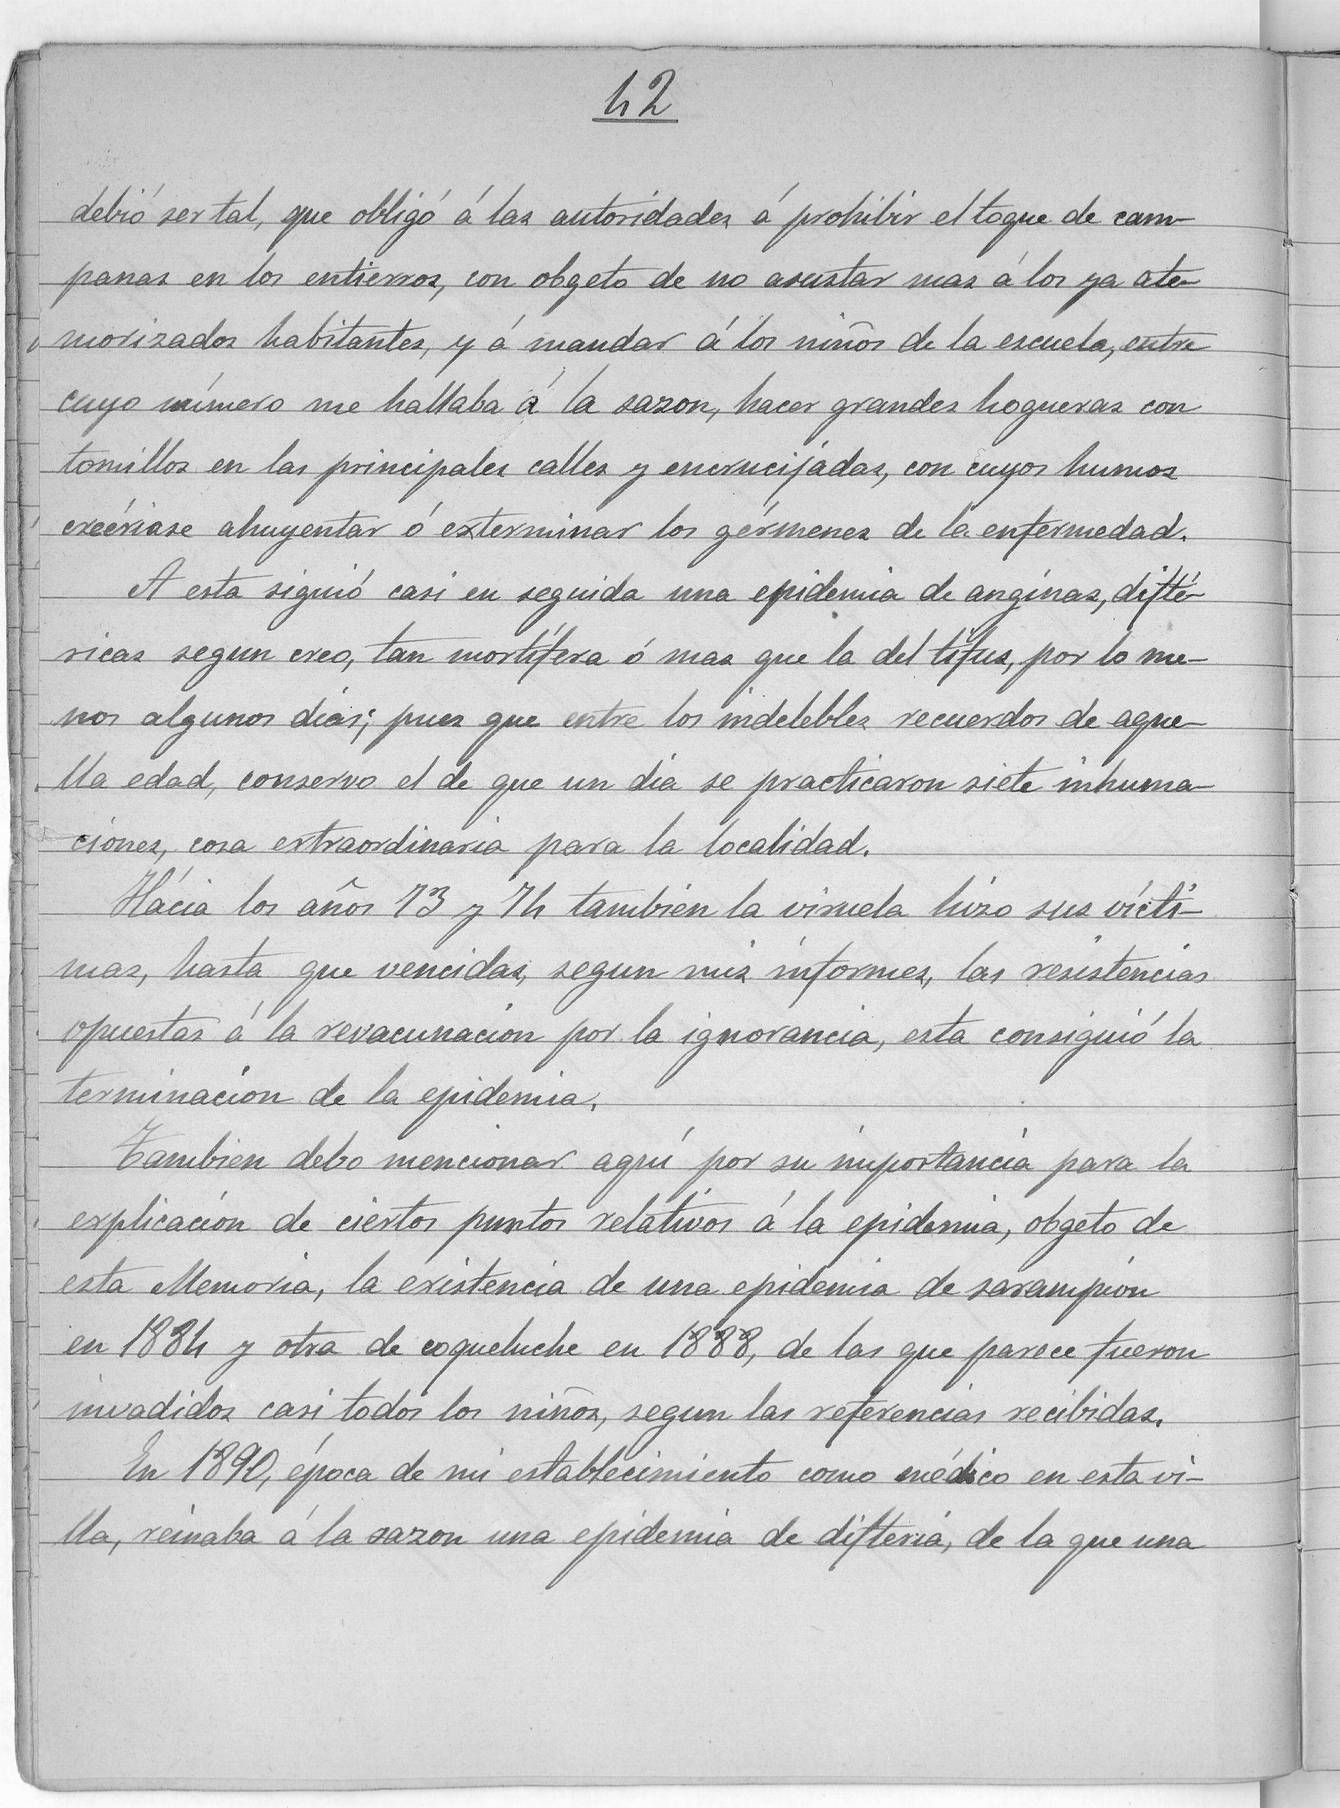 42
debió ser tal, que obligó á las autoridades á prohibir el toque de cam-
panas en los entierros, con obgeto de no asustar mas á los ya ate-
morizados habitantes, y á mandar á los niños de la escuela, entre
cuyo número me hallaba á la sazon, hacer grandes hogueras con
tomillos en las principales calles y encrucijadas, con cuyos humos
creeriase ahuyentar ó exterminar los gérmenes de la enfermedad.
A esta siguió casi en seguida una epidemia de anginas, difté-
ricas segun creo, tan mortífera ó mas que la del tífus, por lo me-
nos algunos dias; pues que entre los indelebles recuerdos de aque-
lla edad, conservo el de que un dia se practicaron siete inhuma-
ciones, cosa extraordinaria para la localidad.
Hácia los años 73 y 74 tambien la viruela hizo sus vícti-
mas, hasta que vencidas, segun mis informes, las resistencias
opuestas á la revacunacion por la ignorancia, esta consiguió la
terminacion de la epidemia.
Tambien debo mencionar aquí por su importancia para la
explicacion de ciertos puntos relativos á la epidemia, obgeto de
esta Memoria, la existencia de una epidemia de sarampion
en 1884 y otra de coqueluche en 1888, de las que parece fueron
invadidos casi todos los niños, segun las referencias recibidas.
En 1890, época de mi establecimiento como médico en esta vi-
lla, reinaba á la sazon una epidemia de difteria, de la que una